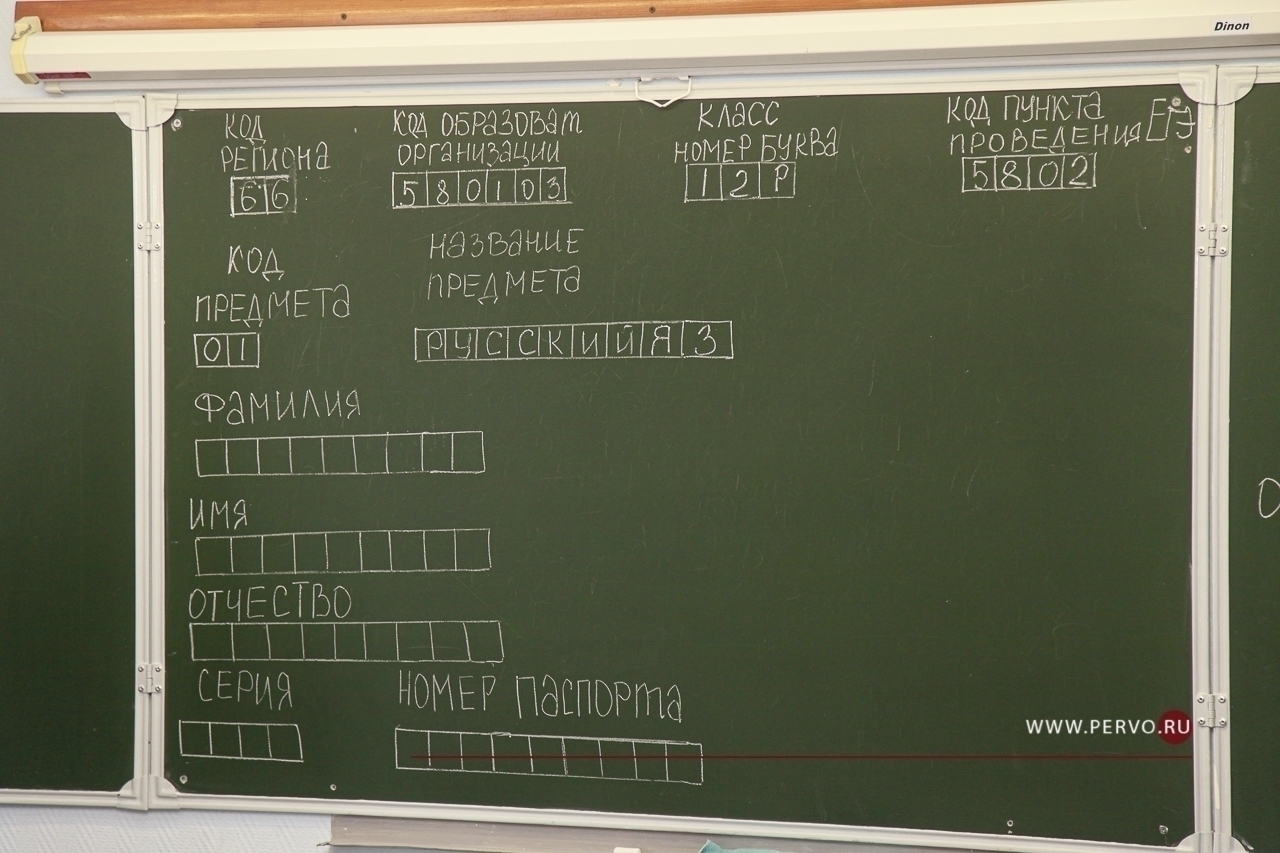 Dinon
КОД
РЕГИОНА
66
КОД ОБРАЗОВАТ
ОРГАНИЗАЦИИ
580103
КЛАСС
НОМЕР БУКВА
12Р
КОД ПУНКТА
ПРОВЕДЕНИЯ ЕГЭ
5802
КОД
ПРЕДМЕТА
01
НАЗВАНИЕ
ПРЕДМЕТА
РУССКИЙЯЗ
ФАМИЛИЯ
ИМЯ
ОТЧЕСТВО
СЕРИЯ
НОМЕР ПАСПОРТА
WWW.PERVO.RU